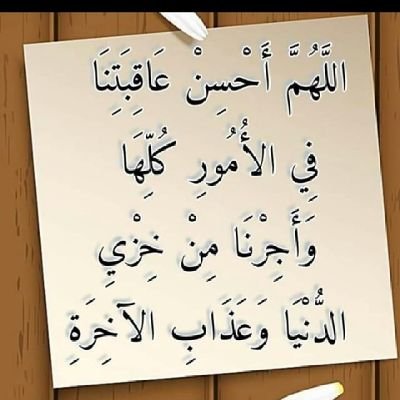 اللَّهُمَّ أَحْسِنْ عَاقِبَتِنَا
فِي الأُمُورِ كُلِّهَا
وَأَجِرْنَا مِنْ خِزْيِ
الدُّنْيَا وَعَذَابِ الآخِرَةِ